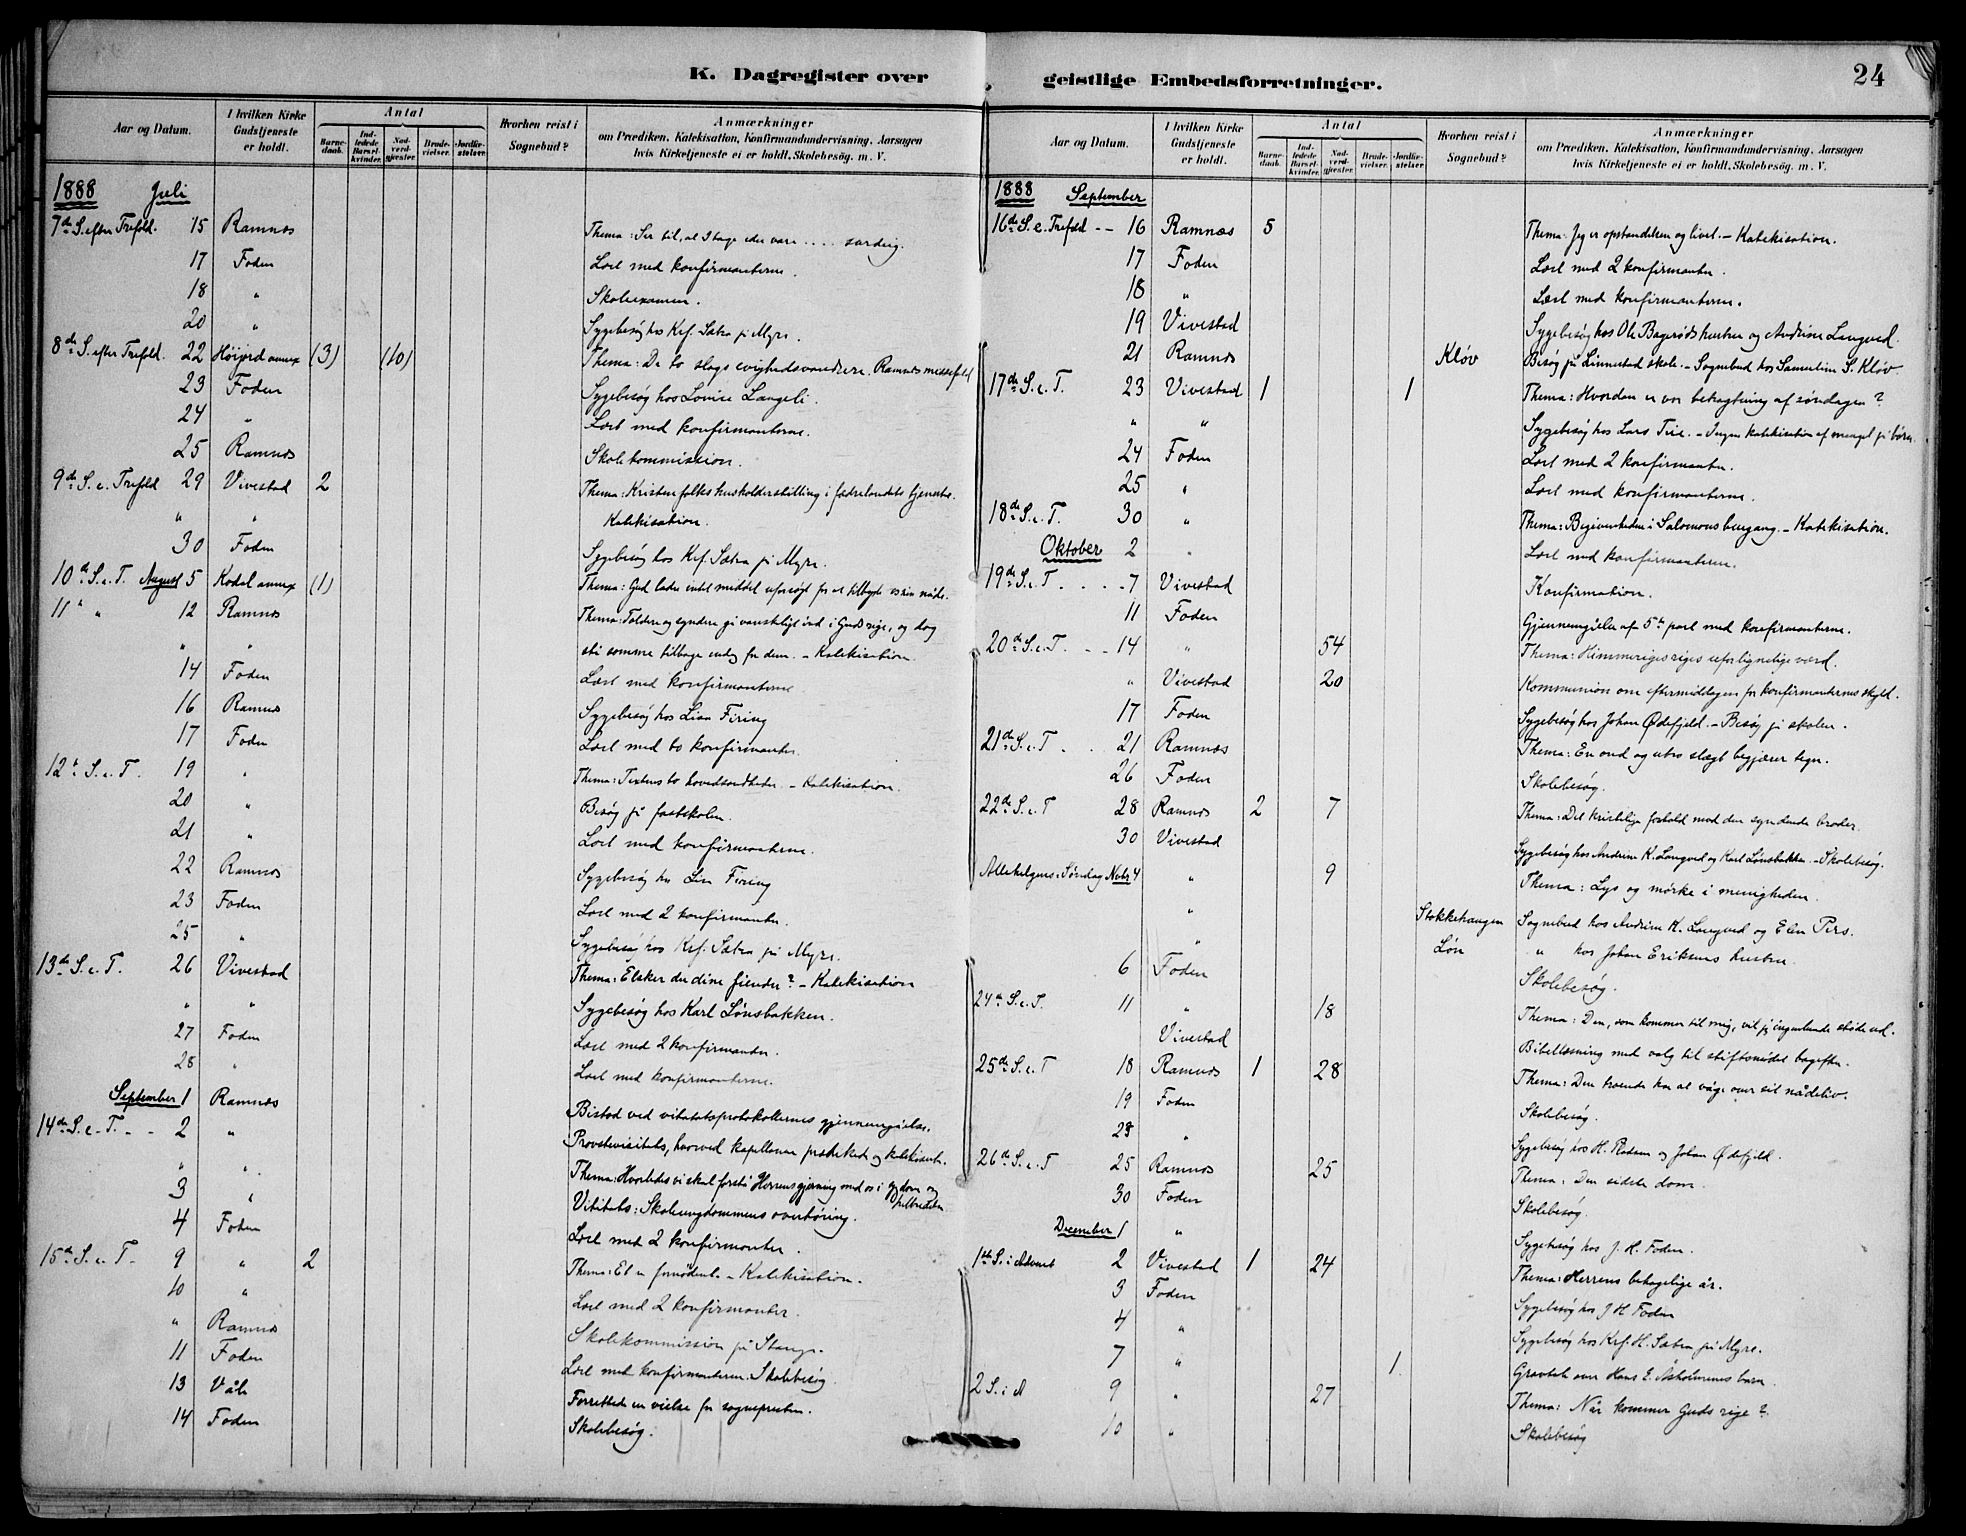 K. Dagregister over
Aar og Datum.
I hvilken Kirke Gudstjeneste er holdt.
Antal
Barnedaab.
Indledede Barselkvinder.
Nadverdgjæster.
Brudevielser.
Jordfæstelser.
Hvorhen reist i Sognebud?
Anmærkninger
om Prædiken, Katekisation, Konfirmandundervisning, Aarsagen
hvis Kirketjeneste ei er holdt, Skolebesög. m. V.
1888 Juli
7de S. efter Trefold. 15 Ramnæs Thema: Ser til, at I tage eder vare .... surdeig.
17 Foden Læst med konfirmanterne.
18 " Skoleexamen.
20 " Sygebesøg hos Krf. Sætra på Myre.
8de S. efter Trefold. 22 Høijord annex (3) (10) Thema: De to slags evighedsvandrere. Ramnæs messefald
23 Foden Sygebesøg hos Lovise Langeli.
24 " Læst med konfirmanterne.
25 Ramnæs Skolekommission.
9de S. e. Trefold 29 Vivestad 2 Thema: Kristenfolks husholderstilling i fædrelandets tjeneste.
" " Katekisation.
30 Foden Sygebesøg hos Krf. Sætra på Myre.
10de S. e. T. August 5 Kodal annex (1) Thema: Gud lader intet middel uforsøgt for at tilbyde os sin nåde.
11 " " 12 Ramnæs Thema: Toldere og syndere gå vanskeligt ind i Guds rige, og dog
" " stå somme tilbage endog for dem. - Katekisation.
14 Foden Læst med konfirmanterne.
16 Ramnæs Sygebesøg hos Lisa Firing
17 Foden Læst med to konfirmanter.
12te S. e. T. 19 " Thema: Textens to hovedsandheder. - Katekisation.
20 " Besøg på fastskolen.
21 " Læst med konfirmanterne.
22 Ramnæs Sygebesøg hos Lisa Firing
23 Foden Læst med 2 konfirmanter.
25 " Sygebesøg hos Krf. Sætra på Myre.
13de S. e. T. 26 Vivestad Thema: Elsker du dine fiender? - Katekisation
" " Sygebesøg hos Karl Lønsbakken.
27 Foden Læst med 2 konfirmanter.
28 " Læst med konfirmanterne.
September 1 Ramnæs Bistod ved visitatsprotokollernes gjennemgåelse.
14de S. e. T. 2 " Provstevisitats, hvorved kapellanen prædikede og katekiserte.
" " Thema: Hvorledes vi skal forstå Herrens gjerning med os i sygdom og helbredelse
3 " Visitats: Skoleungdommens overhøring.
4 Foden Læst med 2 konfirmanter.
15de S. e. T. 9 " 2 Thema: Et er fornødent. - Katekisation.
10 " Læst med 2 konfirmanter.
" Ramnæs Skolekommission på Stange.
11 Foden Læst med konfirmanterne. Skolebesøg
13 Våle Forrettede en vielse for sognepresten.
14 Foden Skolebesøg.
geistlige Embedsforretninger.
24
Aar og Datum.
I hvilken Kirke Gudstjeneste er holdt.
Antal
Barnedaab.
Indledede Barselkvinder.
Nadverdgjæster.
Brudevielser.
Jordfæstelser.
Hvorhen reist i Sognebud?
Anmærkninger
om Prædiken, Katekisation, Konfirmandundervisning, Aarsagen
hvis Kirketjeneste ei er holdt, Skolebesög. m. V.
1888 September
16de S. e. Trefold -- 16 Ramnæs 5 Thema: Jeg er opstandelsen og livet. - Katekisation.
17 Foden Læst med 2 konfirmanter.
18 " Læst med konfirmanterne.
19 Vivestad Sygebesøg hos Ole Bagerøds hustru og Andrine Langved.
21 Ramnæs Kløv Besøg på Linnestad skole. - Sognebud hos Samueline S. Kløv
17de S. e. T. 23 Vivestad 1 1 Thema: Hvordan er vor betragtning af søndagen?
" " Sygebesøg hos Lars Tire. - Ingen katekisation af mangel på børn.
24 Foden Læst med 2 konfirmanter.
25 " Læst med konfirmanterne.
18de S. e. T. 30 " Thema: Begivenheden i Salomons buegang. - Katekisation.
Oktober 2 " Læst med konfirmanterne.
19de S. e. T. 7 Vivestad Konfirmation.
11 Foden Gjennemgåelse af 5te part med konfirmanterne.
20de S. e. T. 14 " 54 Thema: Himmerigesriges uforlignelige værd.
" Vivestad 20 Kommunion om eftermiddagen for konfirmanternes skyld.
17 Foden Sygebesøg hos Johan Ødefjeld. - Besøg på skolen.
21de S. e. T. 21 Ramnæs Thema: En ond og utro slægt begjærer tegn.
26 Foden Skolebesøg.
22de S. e. T 28 Ramnæs 2 7 Thema: Det kristelige forhold mod den syndende broder.
30 Vivestad Sygebesøg hos Andrine K. Langved og Karl Lønsbakken. - Skolebesøg.
Allehelgens Søndag Nobr 4 " 9 Thema: Lys og mørke i menigheden.
" Stokkehaugen Sognebud hos Andrine K. Langved og Elen Pers.
" Løn " hos Johan Eriksens hustru.
6 Foden Skolebesøg.
24de S. e. T. 11 " 18 Thema: Den, som kommer til mig, vil jeg ingenlunde støde ud.
Vivestad Bibellæsning med valg til stiftsmødet bagefter.
25de S. e. T 18 Ramnæs 1 28 Thema: Den troende har at våge over sit nådeliv.
19 Foden Skolebesøg.
23 " Sygebesøg hos H. Rodem og Johan Ødefjeld.
26de S. e. T 25 Ramnæs 25 Thema: Den sidste dom.
30 Foden Skolebesøg.
December 1 " Sygebesøg hos J. H. Foden.
1ste S. i Advent 2 Vivestad 1 24 Thema: Herrens behagelige år.
3 Foden Sygebesøg hos J H Foden
4 " Sygebesøg hos Krf. H. Sætra på Myre.
7 " 1 Gravtale over Hans E. Åsholmens barn.
2 S. i A 9 " 27 Thema: Når kommer Guds rige?
10 " Skolebesøg